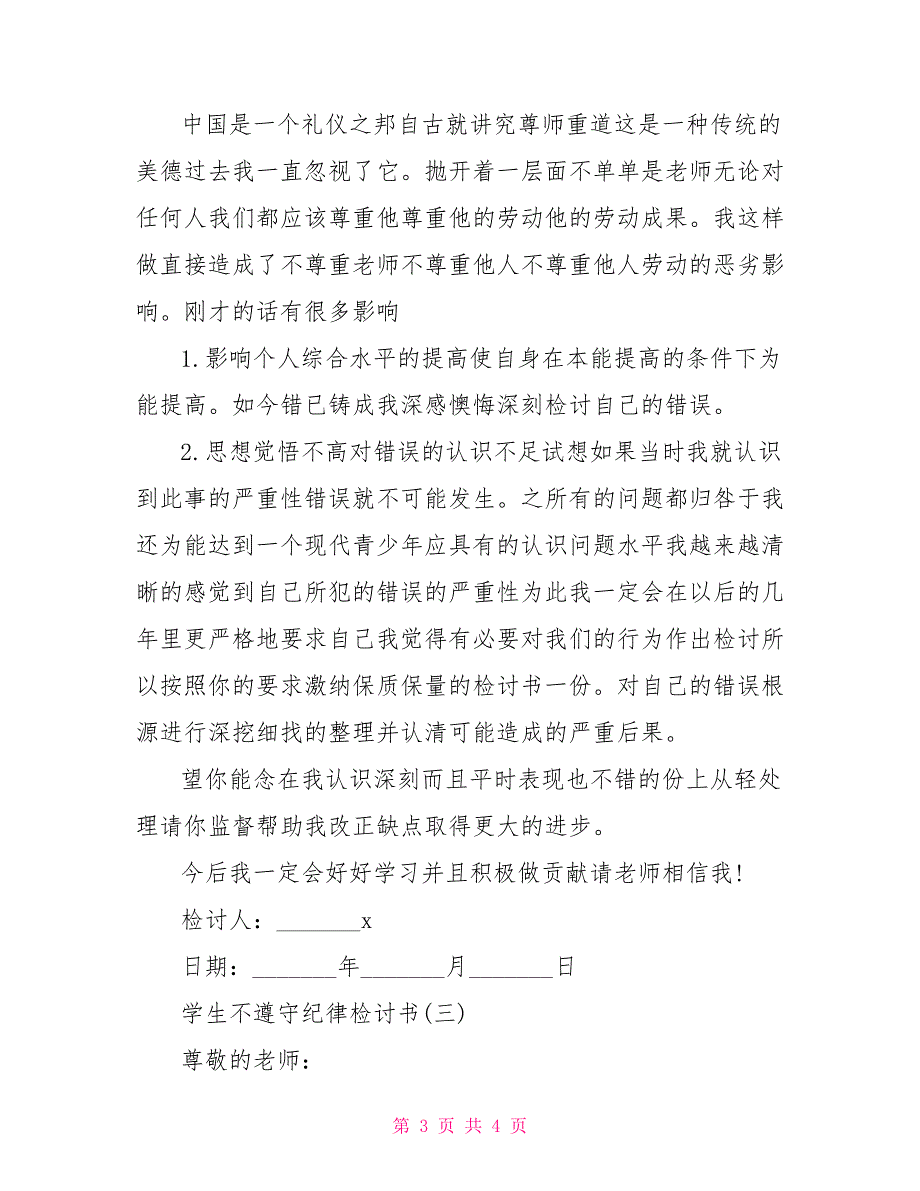 中国是一个礼仪之邦自古就讲究尊师重道这是一种传统的
美德过去我一直忽视了它。抛开着一层面不单单是老师无论对
任何人我们都应该尊重他尊重他的劳动他的劳动成果。我这样
做直接造成了不尊重老师不尊重他人不尊重他人劳动的恶劣影
响。刚才的话有很多影响
1.影响个人综合水平的提高使自身在本能提高的条件下为
能提高。如今错已铸成我深感懊悔深刻检讨自己的错误。
2.思想觉悟不高对错误的认识不足试想如果当时我就认识
到此事的严重性错误就不可能发生。之所有的问题都归咎于我
还为能达到一个现代青少年应具有的认识问题水平我越来越清
晰的感觉到自己所犯的错误的严重性为此我一定会在以后的几
年里更严格地要求自己我觉得有必要对我们的行为作出检讨所
以按照你的要求激纳保质保量的检讨书一份。对自己的错误根
源进行深挖细找的整理并认清可能造成的严重后果。
望你能念在我认识深刻而且平时表现也不错的份上从轻处
理请你监督帮助我改正缺点取得更大的进步。
今后我一定会好好学习并且积极做贡献请老师相信我!
检讨人：_______x
日期：_______年_______月_______日
学生不遵守纪律检讨书(三)
尊敬的老师：
第 3 页 共 4 页